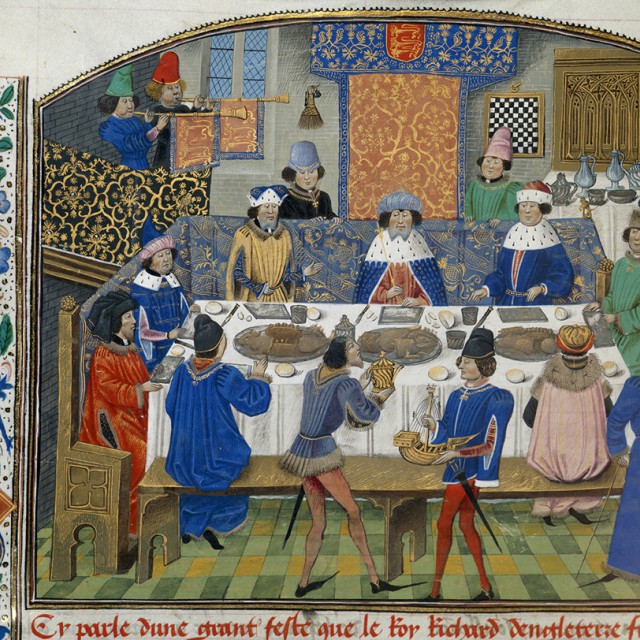 Cy parle dune grant feste que le Roy Richard dengleterre